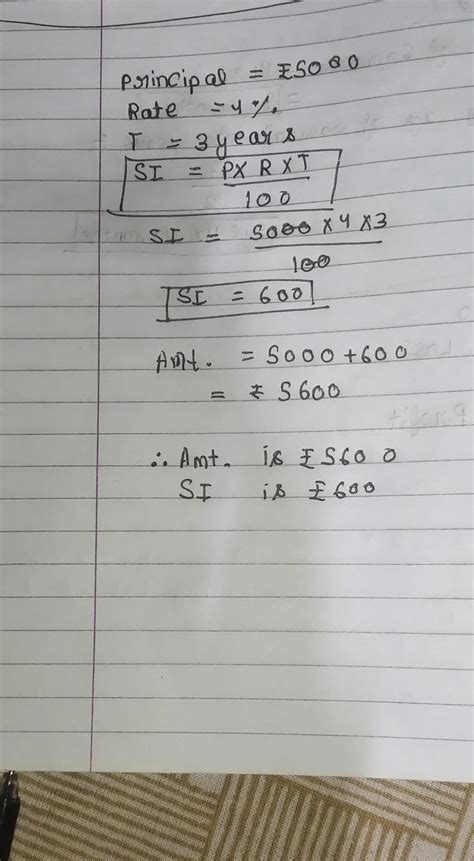 Principal = ₹5000
Rate = 4%.
T = 3 years
SI = P X R X T
100
SI = 5000 X 4 X 3
100
SI = 600
Amt. = 5000 + 600
= ₹ 5600
∴ Amt. is ₹5600
SI is ₹600